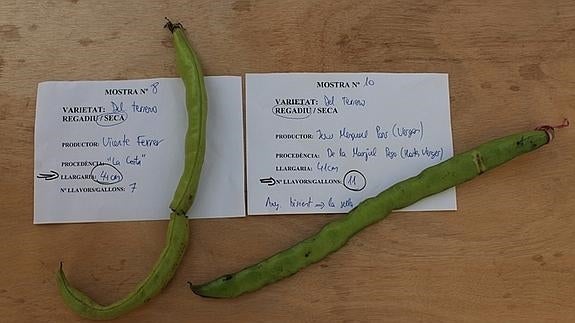 MOSTRA Nº 8
VARIETAT: Del terreno
REGADIU / SECA
PRODUCTOR: Vicente Ferrer
PROCEDÈNCIA: "La Costa"
LLARGARIA: 44cm
Nº LLAVORS/GALLONS: 7
MOSTRA Nº 10
VARIETAT: Del Terreno
REGADIU / SECA
PRODUCTOR: (Verger)
PROCEDÈNCIA: De la
LLARGARIA: 41cm
Nº LLAVORS/GALLONS: 11
la